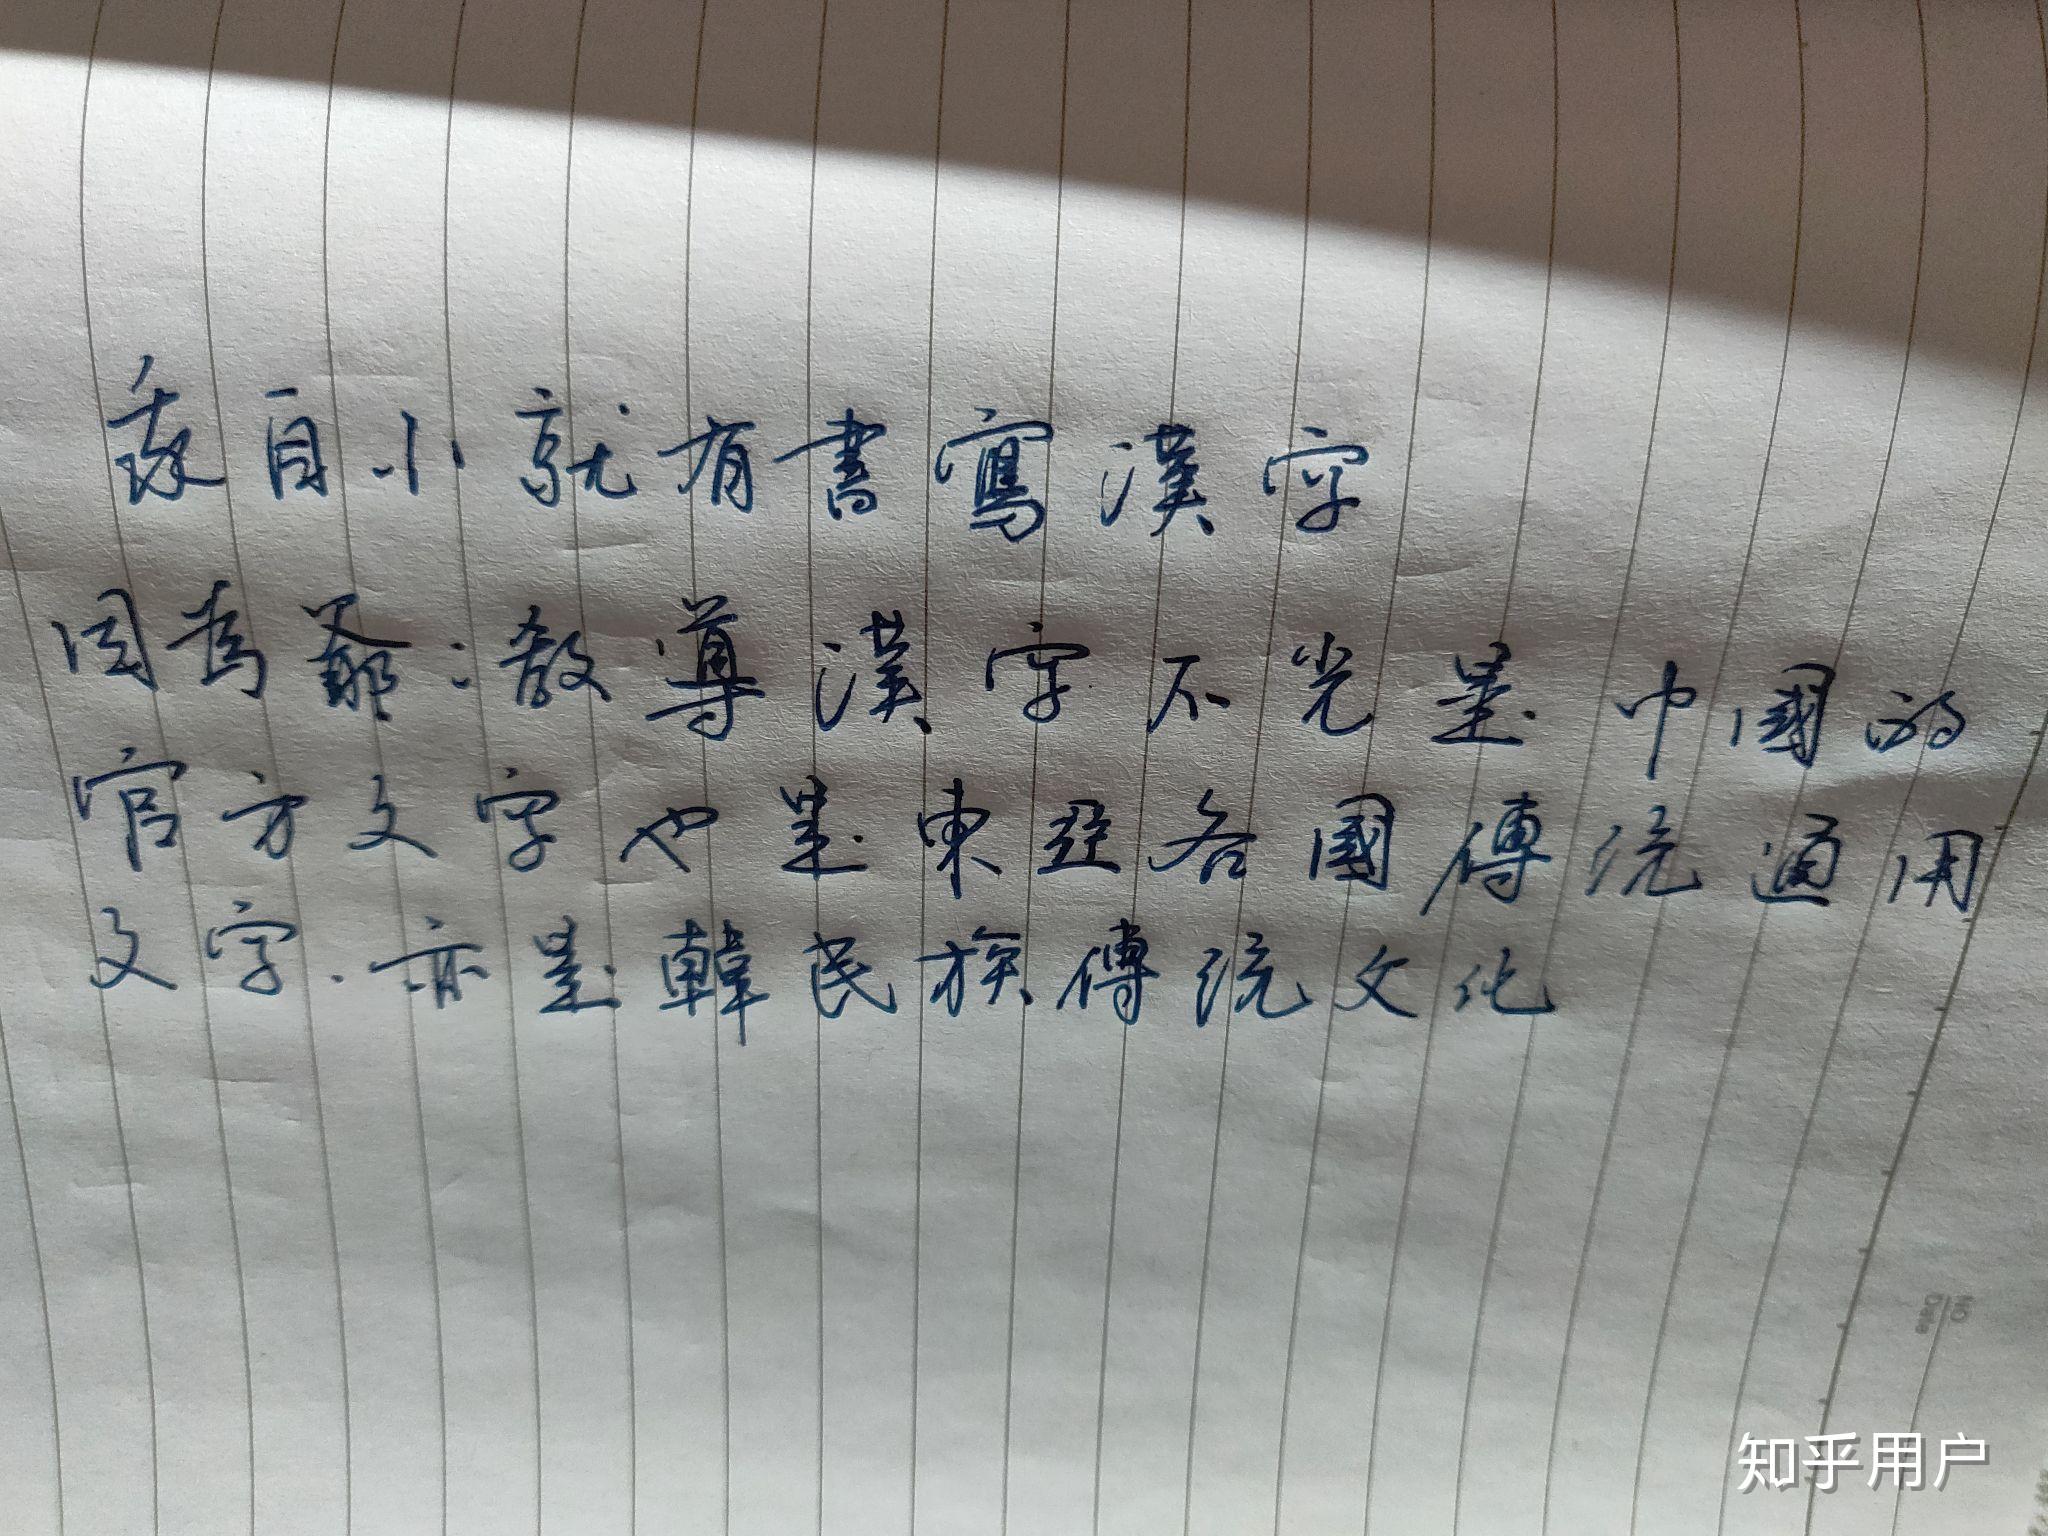 我自小就有書寫漢字
因為爺:教導漢字不光是中國的
官方文字也是東亞各國傳統通用
文字.亦是韓民族傳統文化
NO
Date
知乎用户